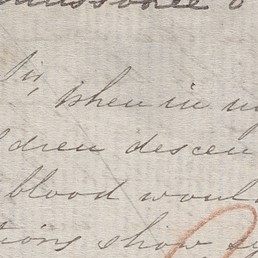 Sir,
when in
dren descen
blood would
tions show